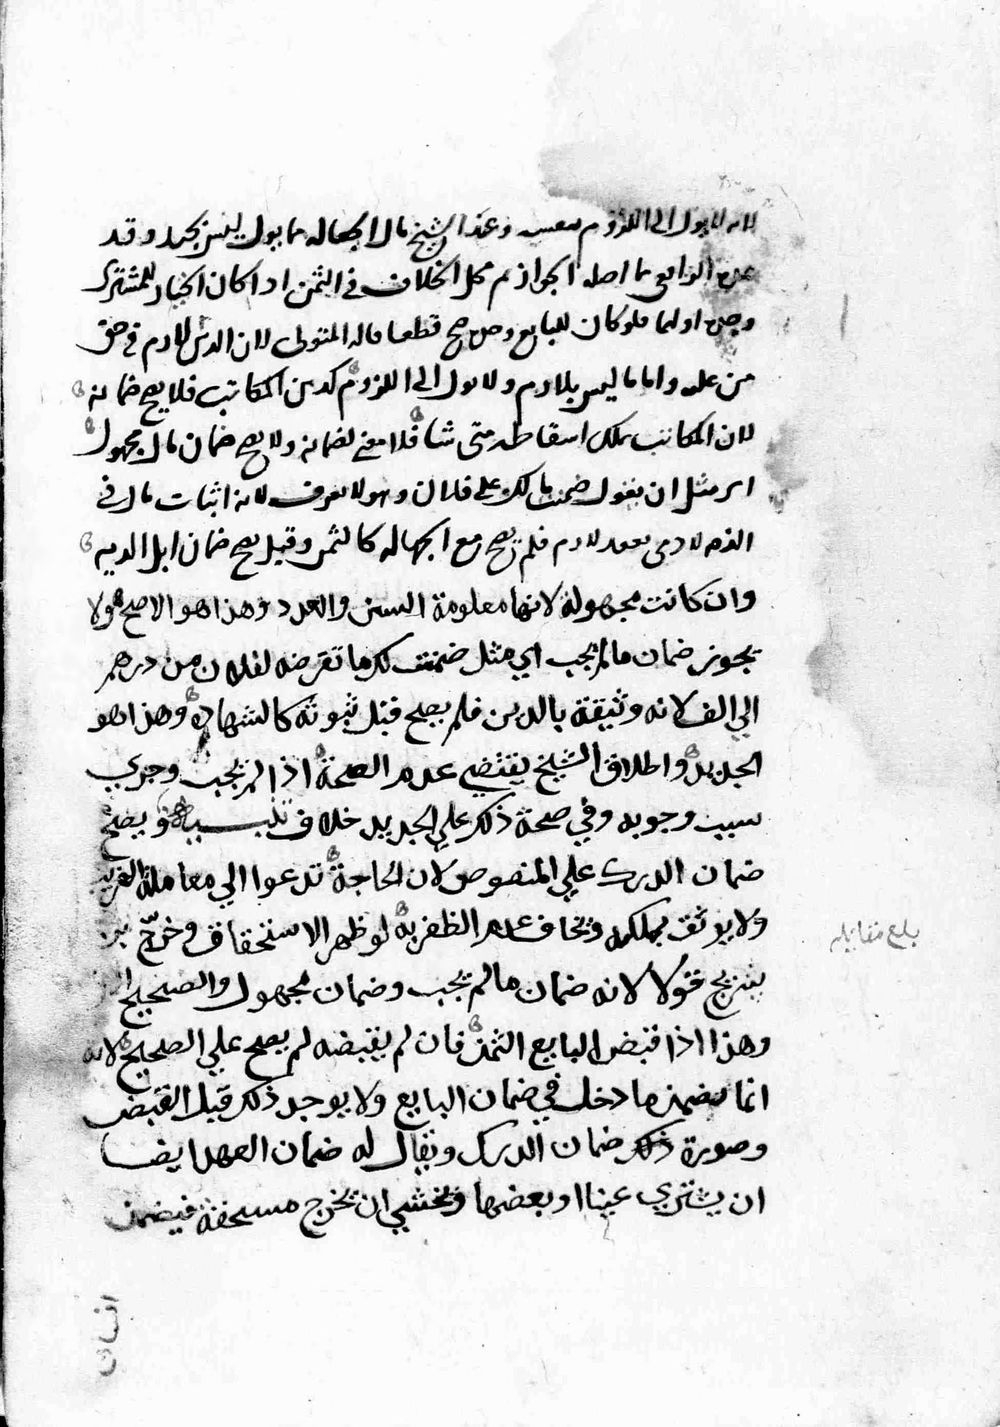 لانه لما يول الى اللزوم بنفسه وعند الشيخ مال الجعاله مما يول ليس بجيد وقد
الرافعي بما اصله الجواز ثم محل الخلاف في الثمن اذا كان الخيار للمشتري
اولهما فلو كان للبايع وحده صح قطعا قاله المتولي لان الدين لازم في حق
من عليه واما ما ليس بلازم ولا يول الى اللزوم كدين المكاتب فلا يصح ضمانه
لان المكاتب يملك اسقاطه متى شا فلا معنى لضمانه ولا يصح ضمان مال مجهول
اي مثل ان يقول ضمنت مالك على فلان وهو لا يعرف لانه اثبات مال في
الذمه لادمي بعقد لازم فلم يصح مع الجهاله كالثمن وقيل يصح ضمان ابل الديه
وان كانت مجهولة لانها معلومة السن والعدد وهذا هو الاصح ولا
يجوز ضمان ما لم يجب اي مثل ضمنت لك ما تقرضه لفلان من درهم
الي الف لانه وثيقة بالدين فلم يصح قبل ثبوته كالشهادة وهذا هو
الجديد واطلاق الشيخ يقتضي عدم الصحة اذا لم يجب وجري
سبب وجوبه وفي صحة ذلك علي الجديد خلاف تنبيه ويصح
ضمان الدرك علي المنصوص لان الحاجة تدعوا الي معاملة الغريب
ولا يوثق بملكه ويخاف عدم الظفر به لو ظهر الاستحقاق وخرج بن
سريج قولا لانه ضمان ما لم يجب وضمان مجهول والصحيح
وهذا اذا قبض البايع الثمن فان لم يقبضه لم يصح علي الصحيح لانه
انما يضمن ما دخل في ضمان البايع ولا يوجد ذلك قبل القبض
وصورة ذلك ضمان الدرك ويقال له ضمان العهد ايضا
ان يشتري عينا او بعضها ويخشي ان تخرج مستحقة فيضمن
انسان
بلغ مقابله